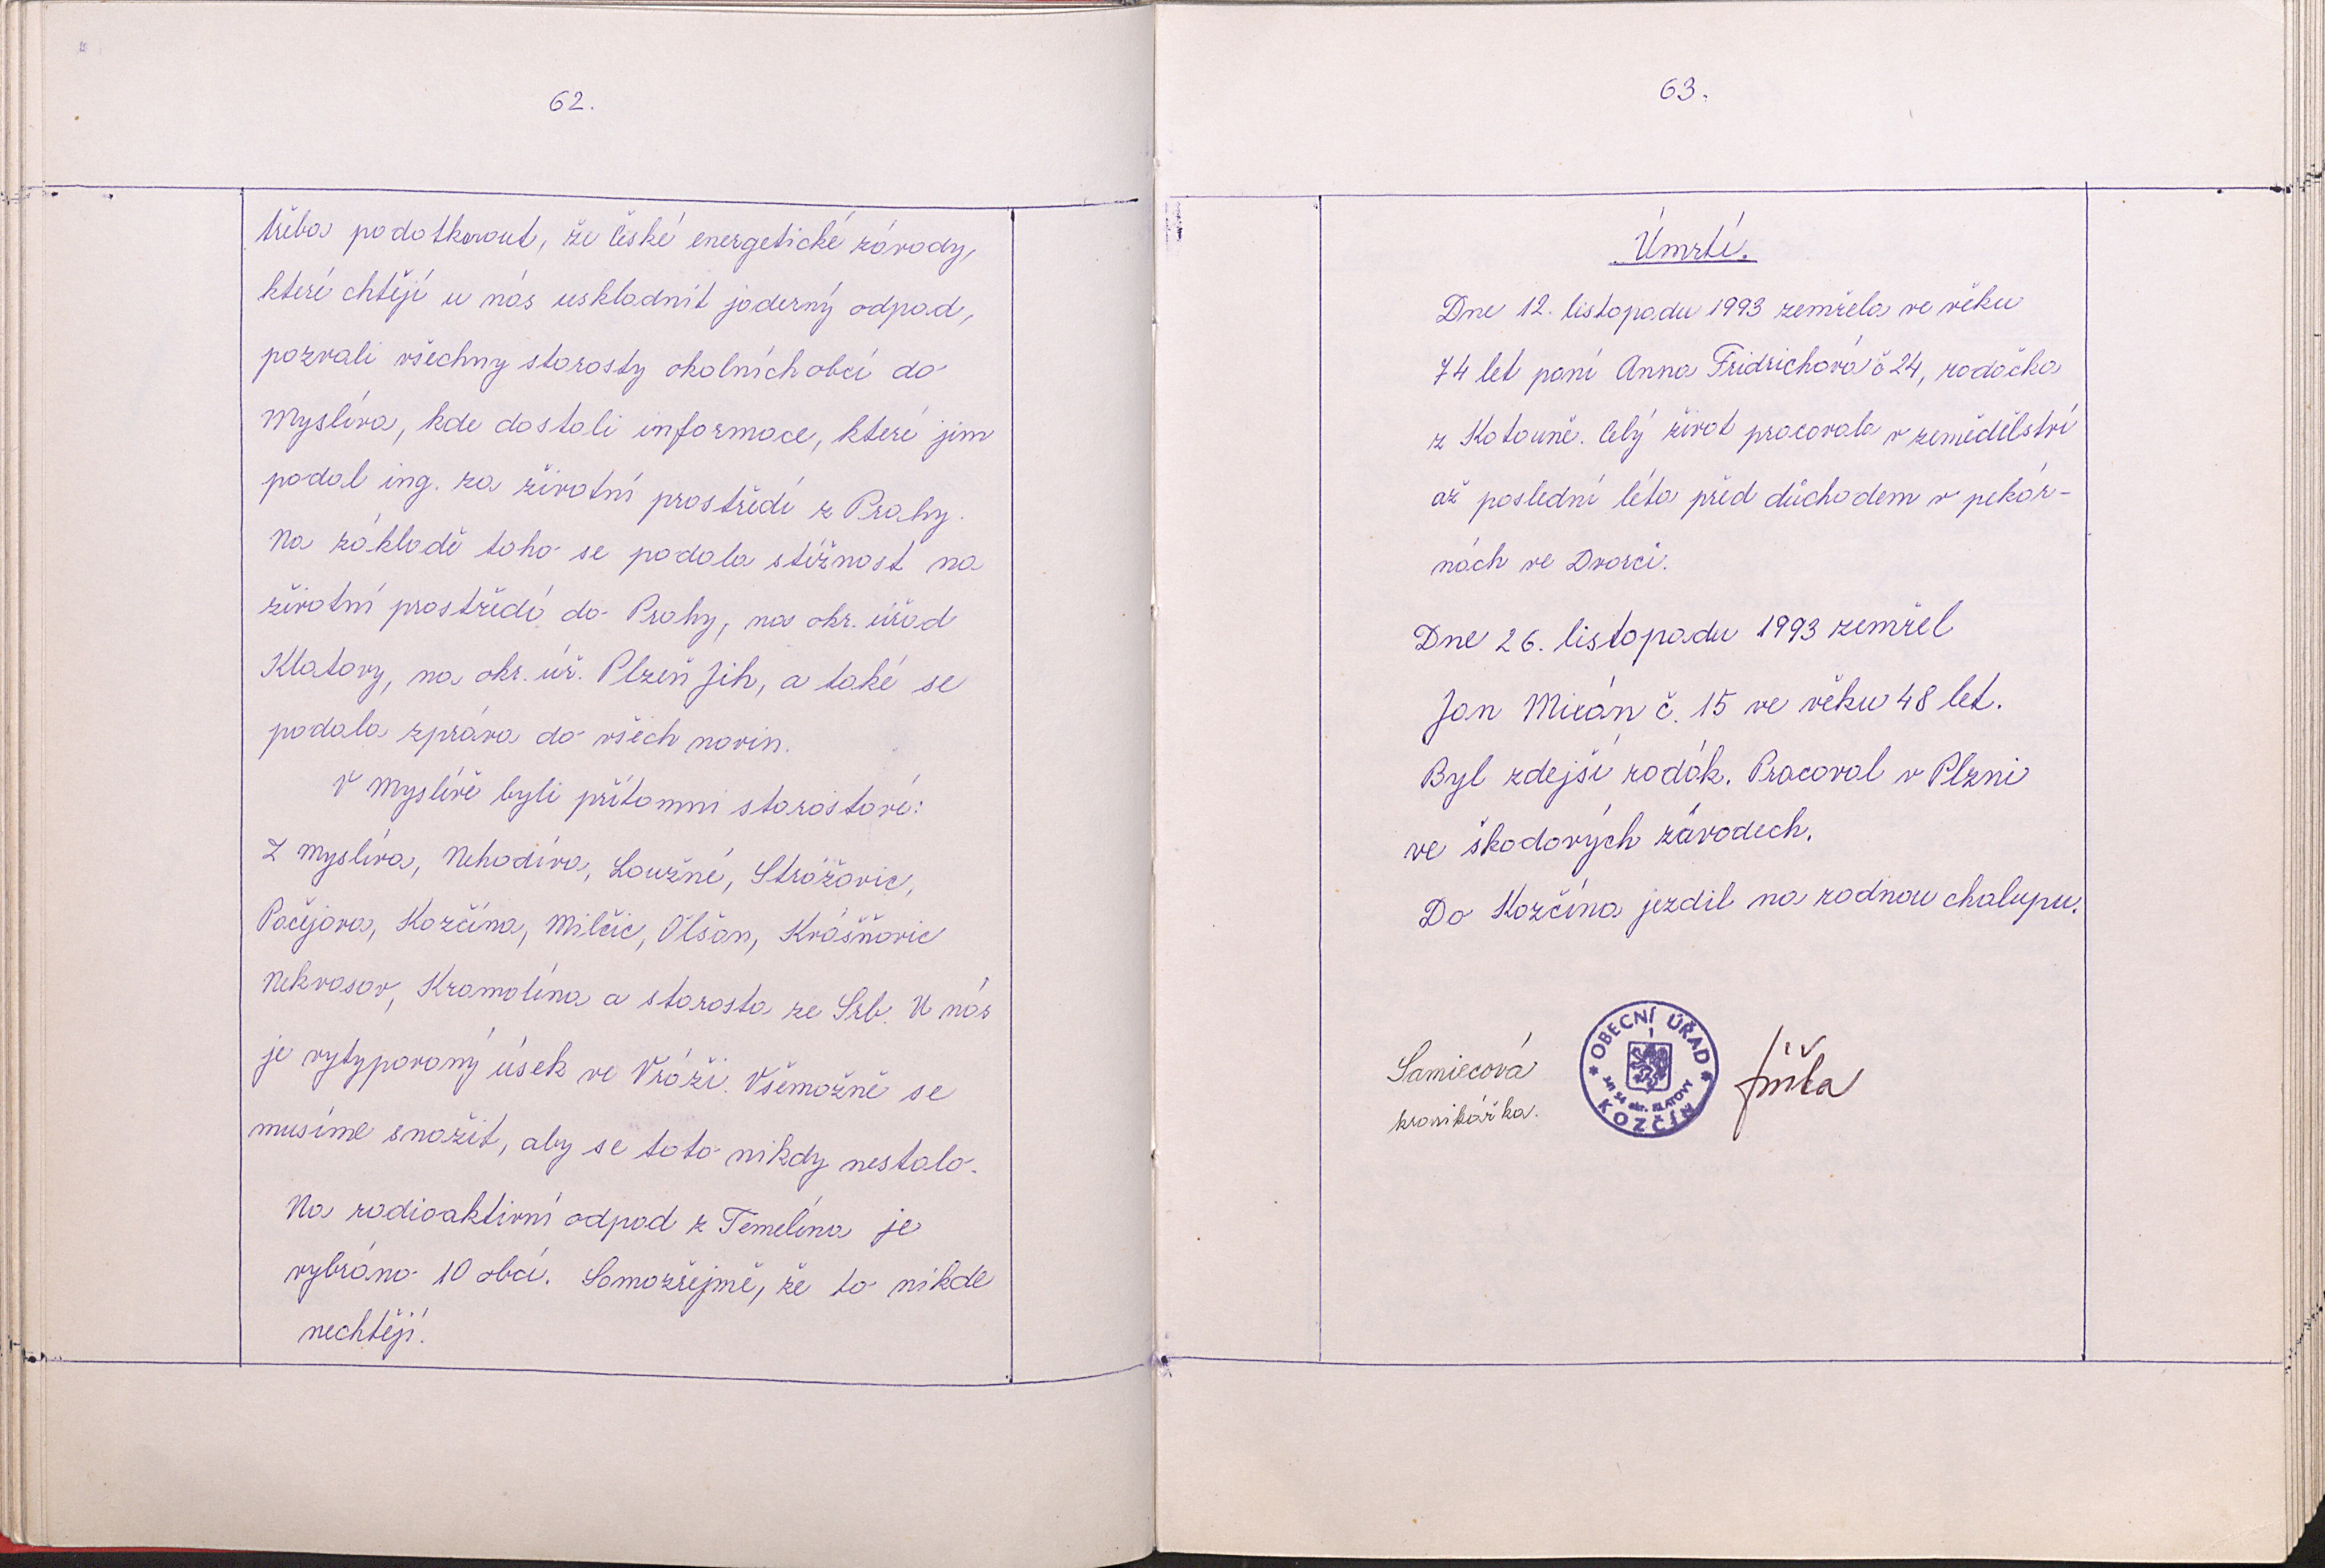 62.
třeba podotknout, že české energetické závody,
které chtějí u nás uskladnit jaderný odpad,
pozvali všechny starosty okolních obcí do
Myslíva, kde dostali informace, které jim
podal ing. za životní prostředí z Prahy.
Na základě toho se podala stížnost na
životní prostředí do Prahy, na okr. úřad
Klatovy, na okr. úř. Plzeň Jih, a také se
podala zpráva do všech novin.
V Myslívě byli přítomni starostové:
Z Myslíva, Nehodíva, Loužné, Strážovic,
Pačejova, Kozčína, Milčic, Olšan, Krášňovic
Nekvasov, Kramolína a starosta ze Srb. U nás
je vytypovaný úsek ve Vráži. Všemožně se
musíme snažit, aby se toto nikdy nestalo.
Na radioaktivní odpad z Temelína je
vybráno 10 obcí. Samozřejmě, že to nikde
nechtějí.
63.
Úmrtí.
Dne 12. listopadu 1993 zemřela ve věku
74 let paní Anna Fridrichová č 24, rodačka
z Kotouně. Celý život pracovala v zemědělství
až poslední léta před důchodem v pekár-
nách ve Dvorci.
Dne 26. listopadu 1993 zemřel
Jan Mixán č. 15 ve věku 48 let.
Byl zdejší rodák. Pracoval v Plzni
ve škodových závodech.
Do Kozčína jezdil na rodnou chalupu.
Samiecová
kronikářka.
OBECNÍ ÚŘAD
341 54 okr. KLATOVY
KOZČÍN